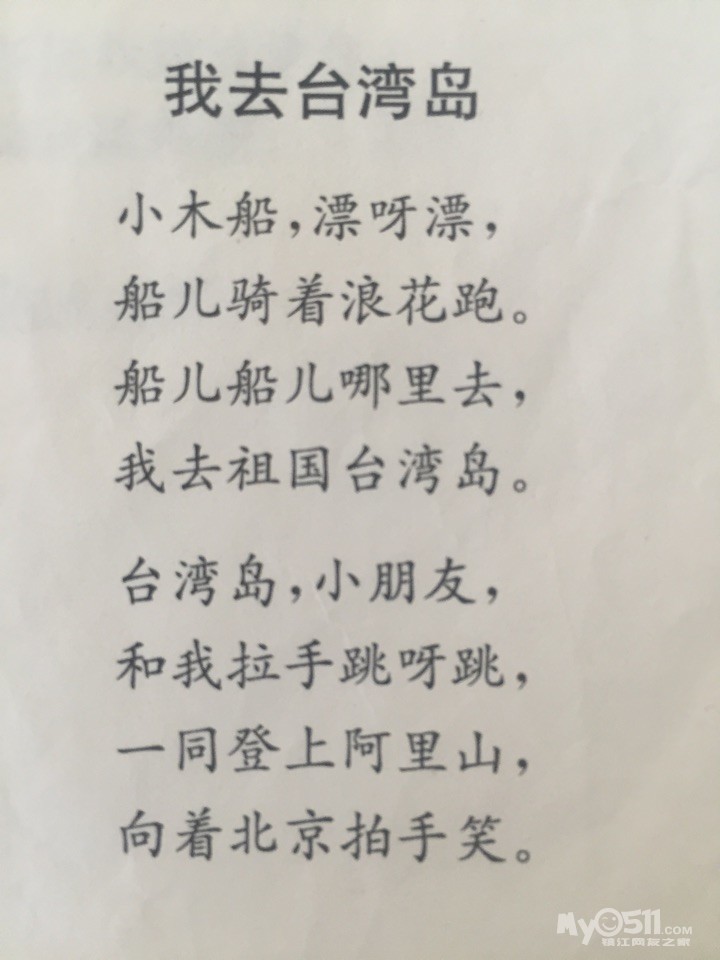 我去台湾岛
小木船，漂呀漂，
船儿骑着浪花跑。
船儿船儿哪里去，
我去祖国台湾岛。
台湾岛，小朋友，
和我拉手跳呀跳，
一同登上阿里山，
向着北京拍手笑。
My0511.com
镇江网友之家